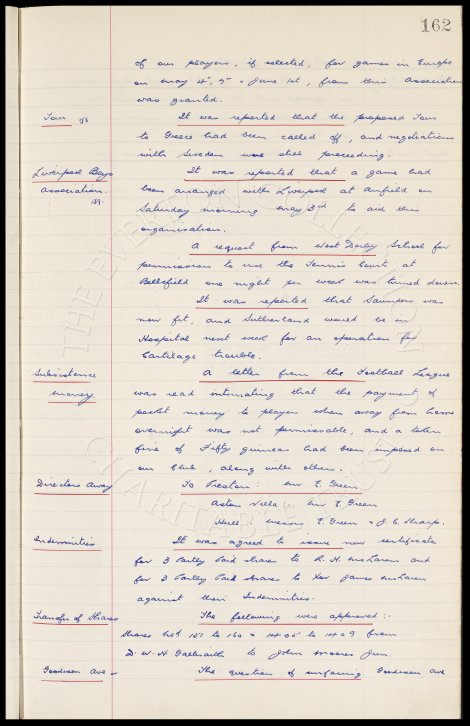 162
of our players, if selected, for games in Europe
on May 4th, 9th & June 1st, from this Association
was granted.
Tour 58 It was reported that the proposed Tour
to Greece had been called off, and negotiations
with Sweden were still proceeding.
Liverpool Boys It was reported that a game had
Association. been arranged with Liverpool at Anfield on
Saturday morning May 3rd to aid this
organisation.
A request from West Derby School for
permission to use the Tennis Court at
Bellefield one night per week was turned down.
It was reported that Saunders was
now fit, and Sutherland would be in
Hospital next week for an operation for
Cartilage trouble.
Subsistence A letter from the Football League
money. was read intimating that the payment of
pocket money to players when away from home
overnight was not permissable, and a token
fine of Fifty guineas had been imposed on
our Club, along with others.
Directors Away To Preston: Mr T. Green
Aston Villa: Mr T. Green
Hull: Messrs T. Green & J. C. Sharp.
Indemnities It was agreed to issue new certificates
for 3 Partly Paid shares to R. H. McLaren and
for 3 Partly Paid shares to James McLaren
against their Indemnities.
Transfer of Shares The following were approved:-
Shares Nos 151 to 160 & 1405 to 1409 from
D. W. H. Galbraith to John Moores Jun.
Goodison Ave - The question of surfacing Goodison Ave
THE EVERTON COLLECTION
CHARITABLE TRUST